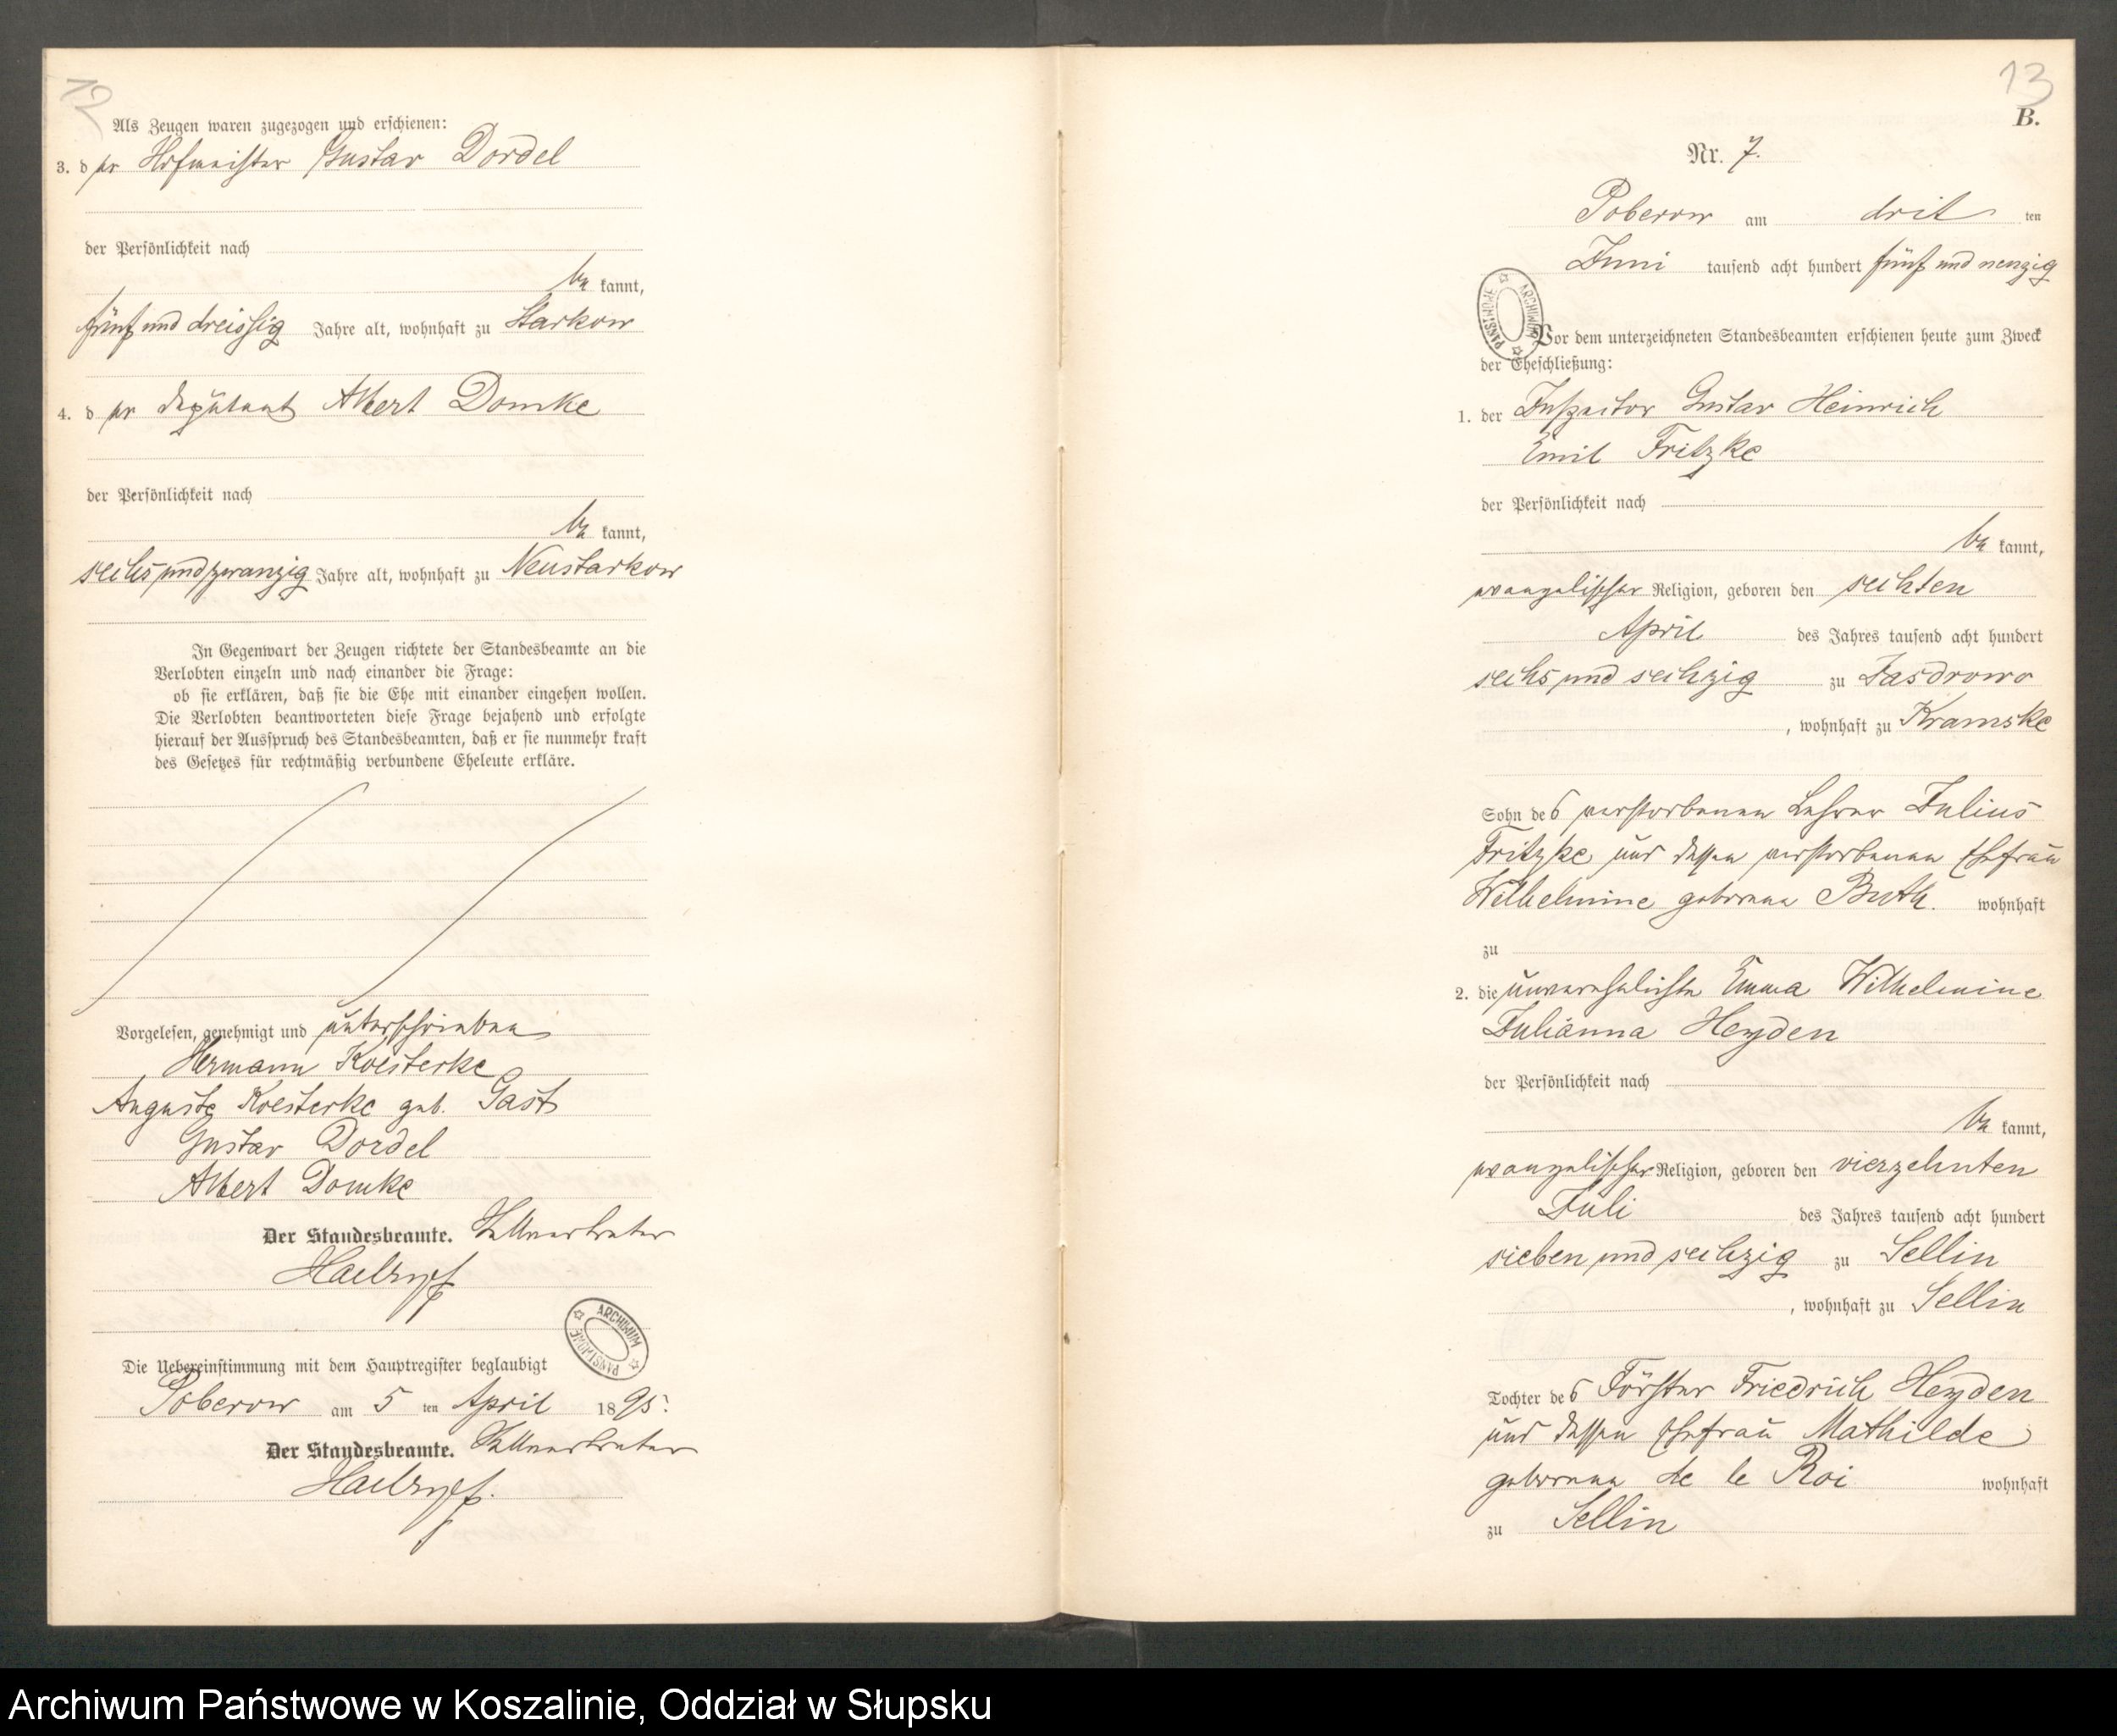 12
Als Zeugen waren zugezogen und erschienen:
3. d er Hofmeister Gustav Dordel
der Persönlichkeit nach
be kannt,
fünf und dreissig Jahre alt, wohnhaft zu Starkow
4. d er Deputant Albert Domke
der Persönlichkeit nach
be kannt,
sechs und zwanzig Jahre alt, wohnhaft zu Neustarkow
In Gegenwart der Zeugen richtete der Standesbeamte an die
Verlobten einzeln und nach einander die Frage:
ob sie erklären, daß sie die Ehe mit einander eingehen wollen.
Die Verlobten beantworteten diese Frage bejahend und erfolgte
hierauf der Ausspruch des Standesbeamten, daß er sie nunmehr kraft
des Gesetzes für rechtmäßig verbundene Eheleute erkläre.
Vorgelesen, genehmigt und unterschrieben
Hermann Koesterke
Auguste Koesterke geb. Gast
Gustav Dordel
Albert Domke
Der Standesbeamte. Stellvertreter
ARCHIWUM PAŃSTWOWE
Die Uebereinstimmung mit dem Hauptregister beglaubigt
Poberow am 5 ten April 18 95.
Der Standesbeamte. Stellvertreter
13
B.
Nr. 7.
Poberow am drit ten
Juni tausend acht hundert fünf und neunzig
ARCHIWUM PAŃSTWOWE
Vor dem unterzeichneten Standesbeamten erschienen heute zum Zweck
der Eheschließung:
1. der Inspector Gustav Heinrich
Emil Fritzke
der Persönlichkeit nach
be kannt,
evangelischer Religion, geboren den sechten
April des Jahres tausend acht hundert
sechs und sechzig zu Jasdrowo
, wohnhaft zu Kramske
Sohn des verstorbenen Lehrer Julius
Fritzke und dessen verstorbenen Ehefrau
Wilhelmine geborene Buth. wohnhaft
zu
2. die unverehelichte Emma Wilhelmine
Julianna Heyden
der Persönlichkeit nach
be kannt,
evangelischer Religion, geboren den vierzehnten
Juli des Jahres tausend acht hundert
sieben und sechzig zu Sellin
, wohnhaft zu Sellin
Tochter des Förster Friedrich Heyden
und dessen Ehefrau Mathilde
geborene de le Roi wohnhaft
zu Sellin
Archiwum Państwowe w Koszalinie, Oddział w Słupsku